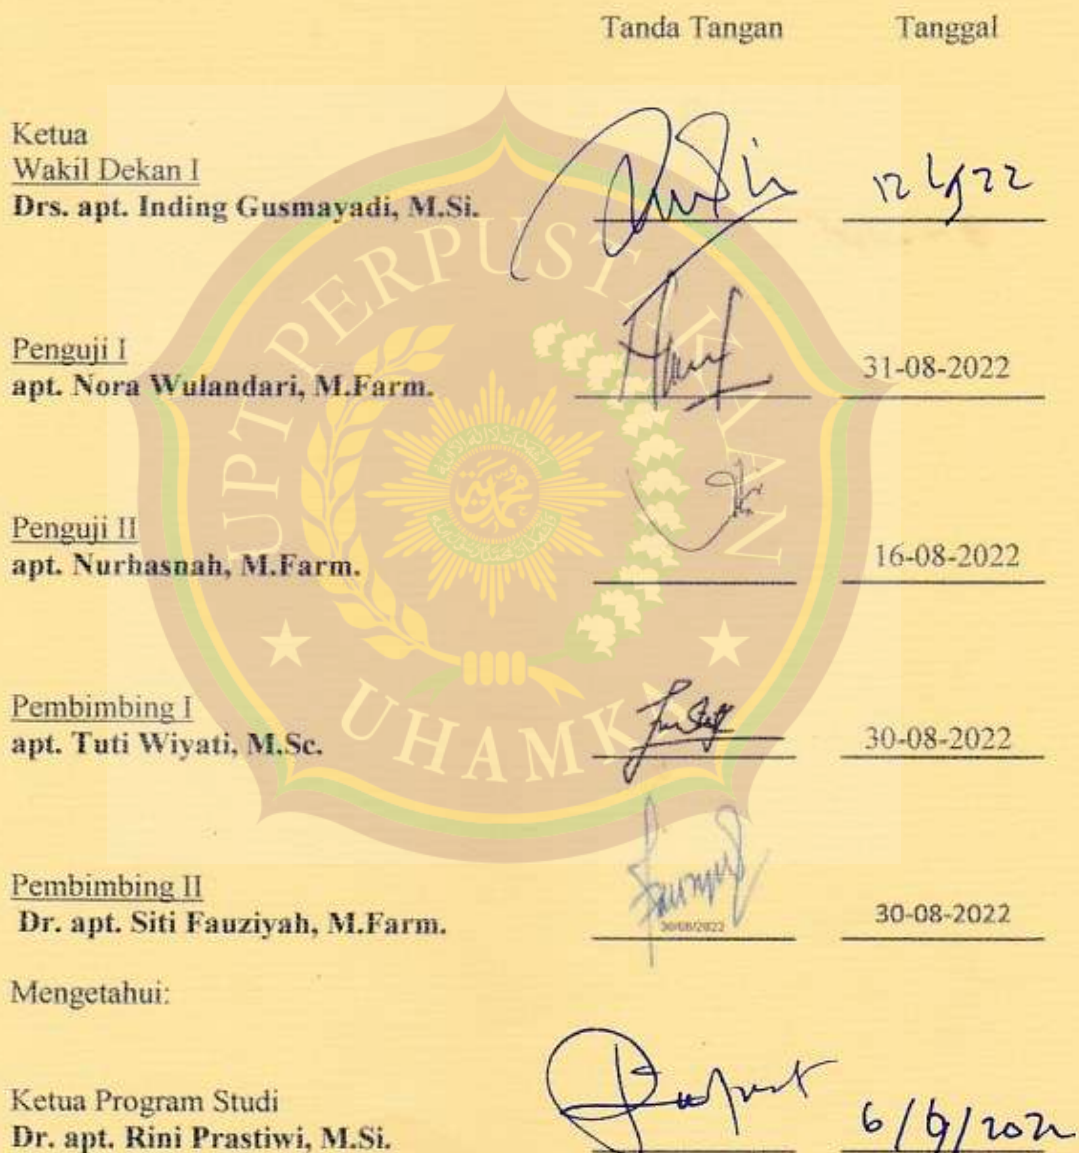 Tanda Tangan Tanggal
Ketua
Wakil Dekan I
Drs. apt. Inding Gusmayadi, M.Si.
Penguji I
apt. Nora Wulandari, M.Farm. 31-08-2022
Penguji II
apt. Nurhasnah, M.Farm. 16-08-2022
Pembimbing I
apt. Tuti Wiyati, M.Sc. 30-08-2022
Pembimbing II
Dr. apt. Siti Fauziyah, M.Farm. 30/08/2022 30-08-2022
Mengetahui:
Ketua Program Studi
Dr. apt. Rini Prastiwi, M.Si. 6/9/2022
UPT PERPUSTAKAAN
UHAMKA